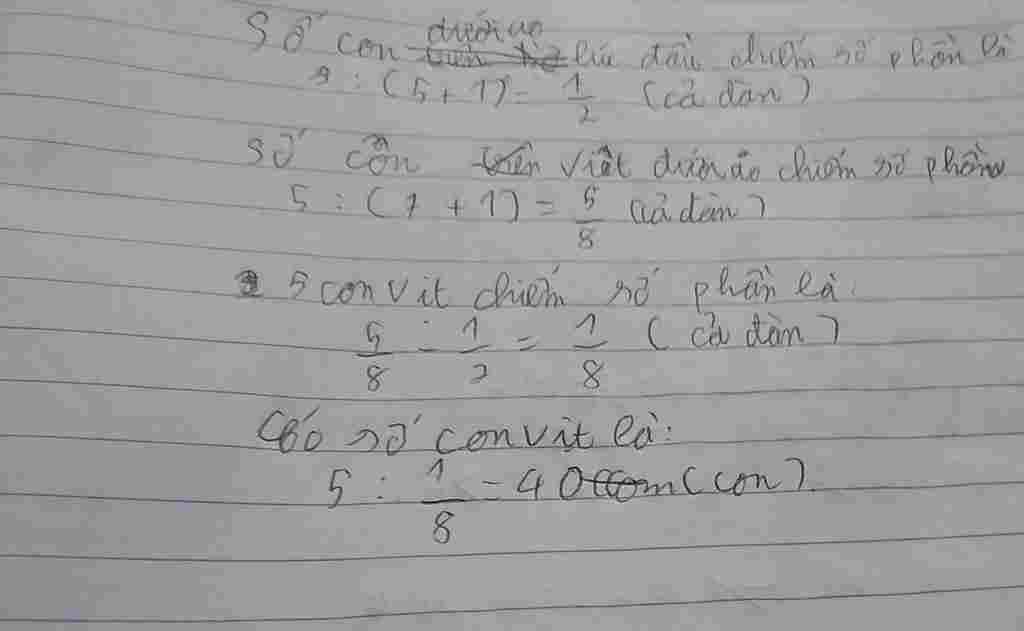 Số con dưới ao lúc đầu chiếm số phần là
: (5+1) = 1/2 (cả đàn)
Số còn vịt dưới ao chiếm số phần
5 : (7 + 1) = 5/8 (cả đàn)
5 con vịt chiếm số phần là:
5/8 - 1/2 = 1/8 (cả đàn)
Có số con vịt là:
5 : 1/8 = 40 (con)